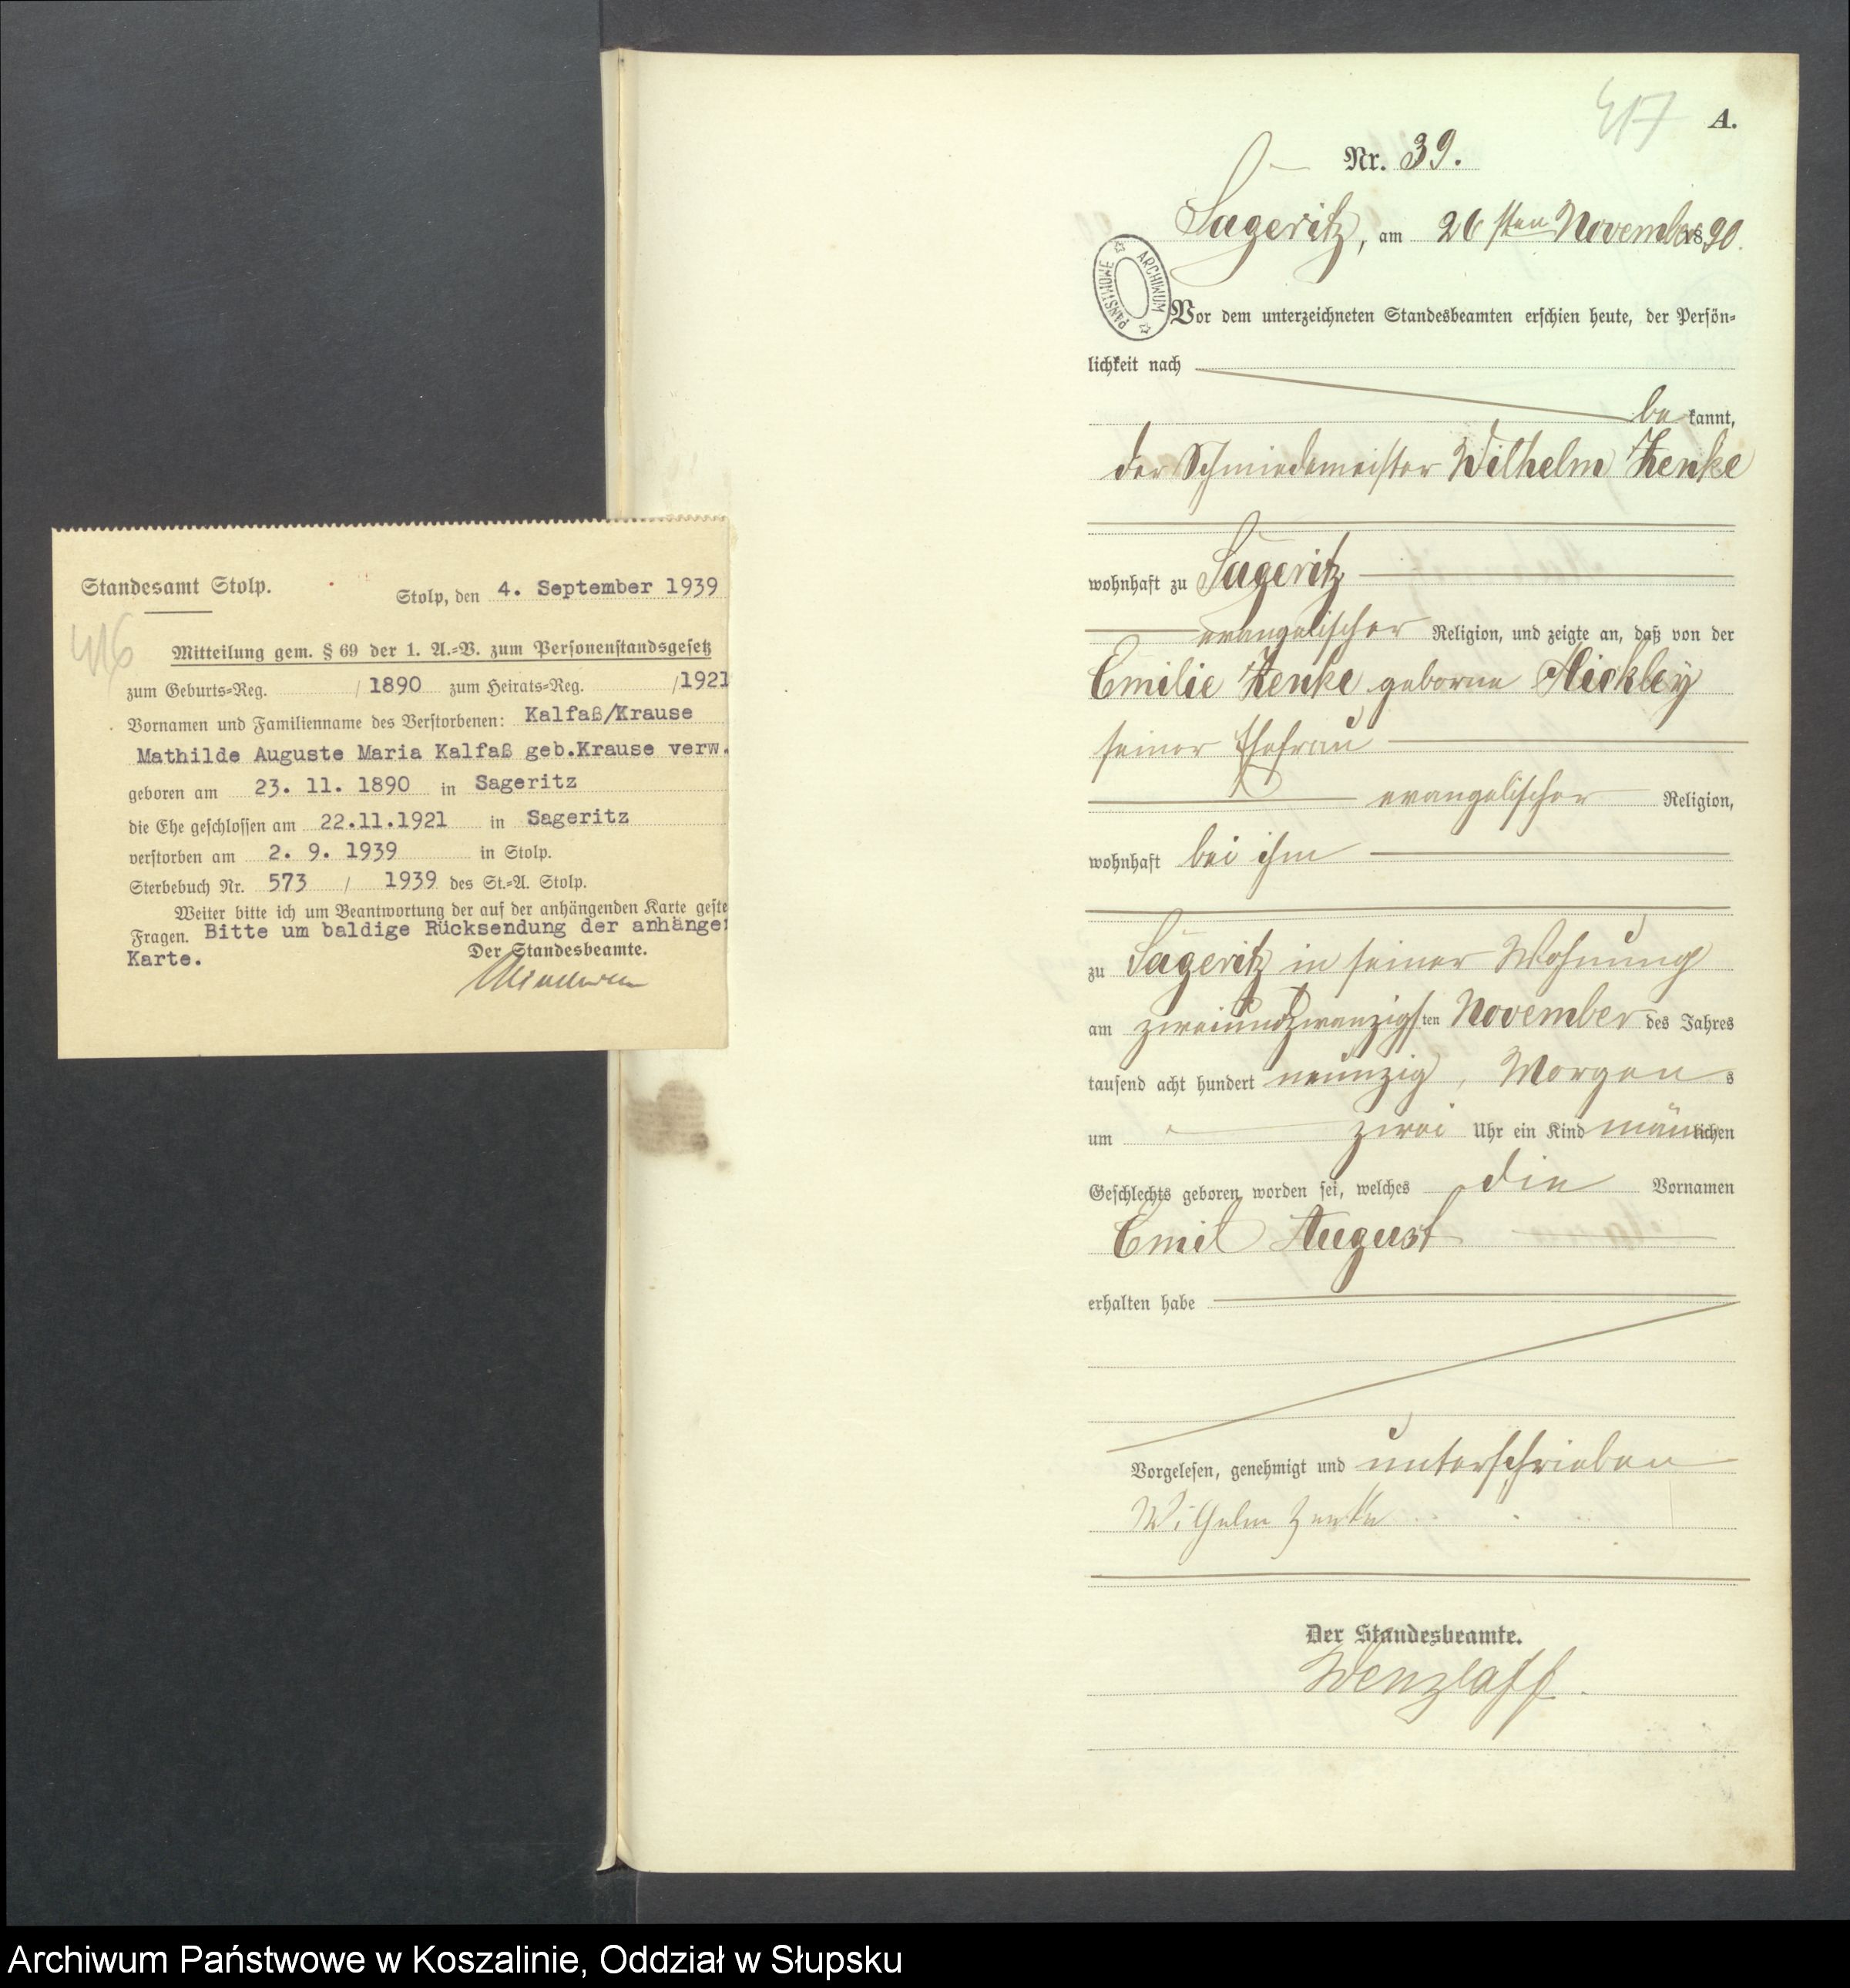 Standesamt Stolp.
Stolp, den 4. September 1939
416
Mitteilung gem. § 69 der 1. A.-V. zum Personenstandsgesetz
zum Geburts-Reg. / 1890 zum Heirats-Reg. /1921
Vornamen und Familienname des Verstorbenen: Kalfaß/Krause
Mathilde Auguste Maria Kalfaß geb.Krause verw.
geboren am 23. 11. 1890 in Sageritz
die Ehe geschlossen am 22.11.1921 in Sageritz
verstorben am 2. 9. 1939 in Stolp.
Sterbebuch Nr. 573 / 1939 des St.-A. Stolp.
Weiter bitte ich um Beantwortung der auf der anhängenden Karte geste
Fragen. Bitte um baldige Rücksendung der anhänge
Karte.
Der Standesbeamte.
417
A.
Nr. 39.
Sageritz, am 26 sten November 1890.
ARCHIWUM PAŃSTWOWE
Vor dem unterzeichneten Standesbeamten erschien heute, der Persön-
lichkeit nach
be kannt,
der Schmiedemeister Wilhelm Zenke
wohnhaft zu Sageritz
evangelischer Religion, und zeigte an, daß von der
Emilie Zenke geborne
seiner Ehefrau
evangelischer Religion,
wohnhaft bei ihm
zu Sageritz in seiner Wohnung
am zweiundzwanzigsten November des Jahres
tausend acht hundert neunzig, Morgens
um zwei Uhr ein Kind mänlichen
Geschlechts geboren worden sei, welches die Vornamen
Emil August
erhalten habe
Vorgelesen, genehmigt und unterschrieben
Wilhelm Zenke
Der Standesbeamte.
Wenzlaff.
Archiwum Państwowe w Koszalinie, Oddział w Słupsku